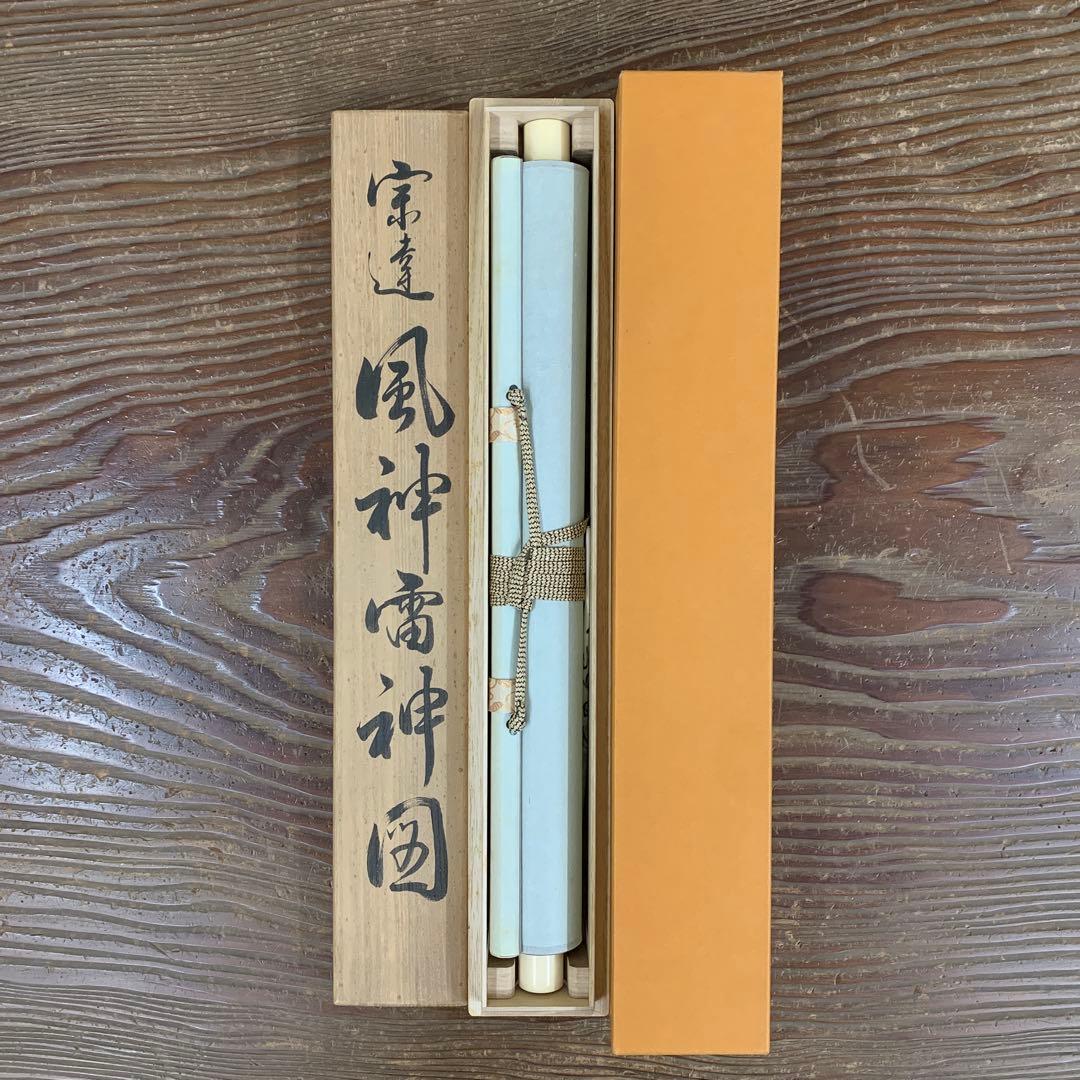 宗達
風神雷神図